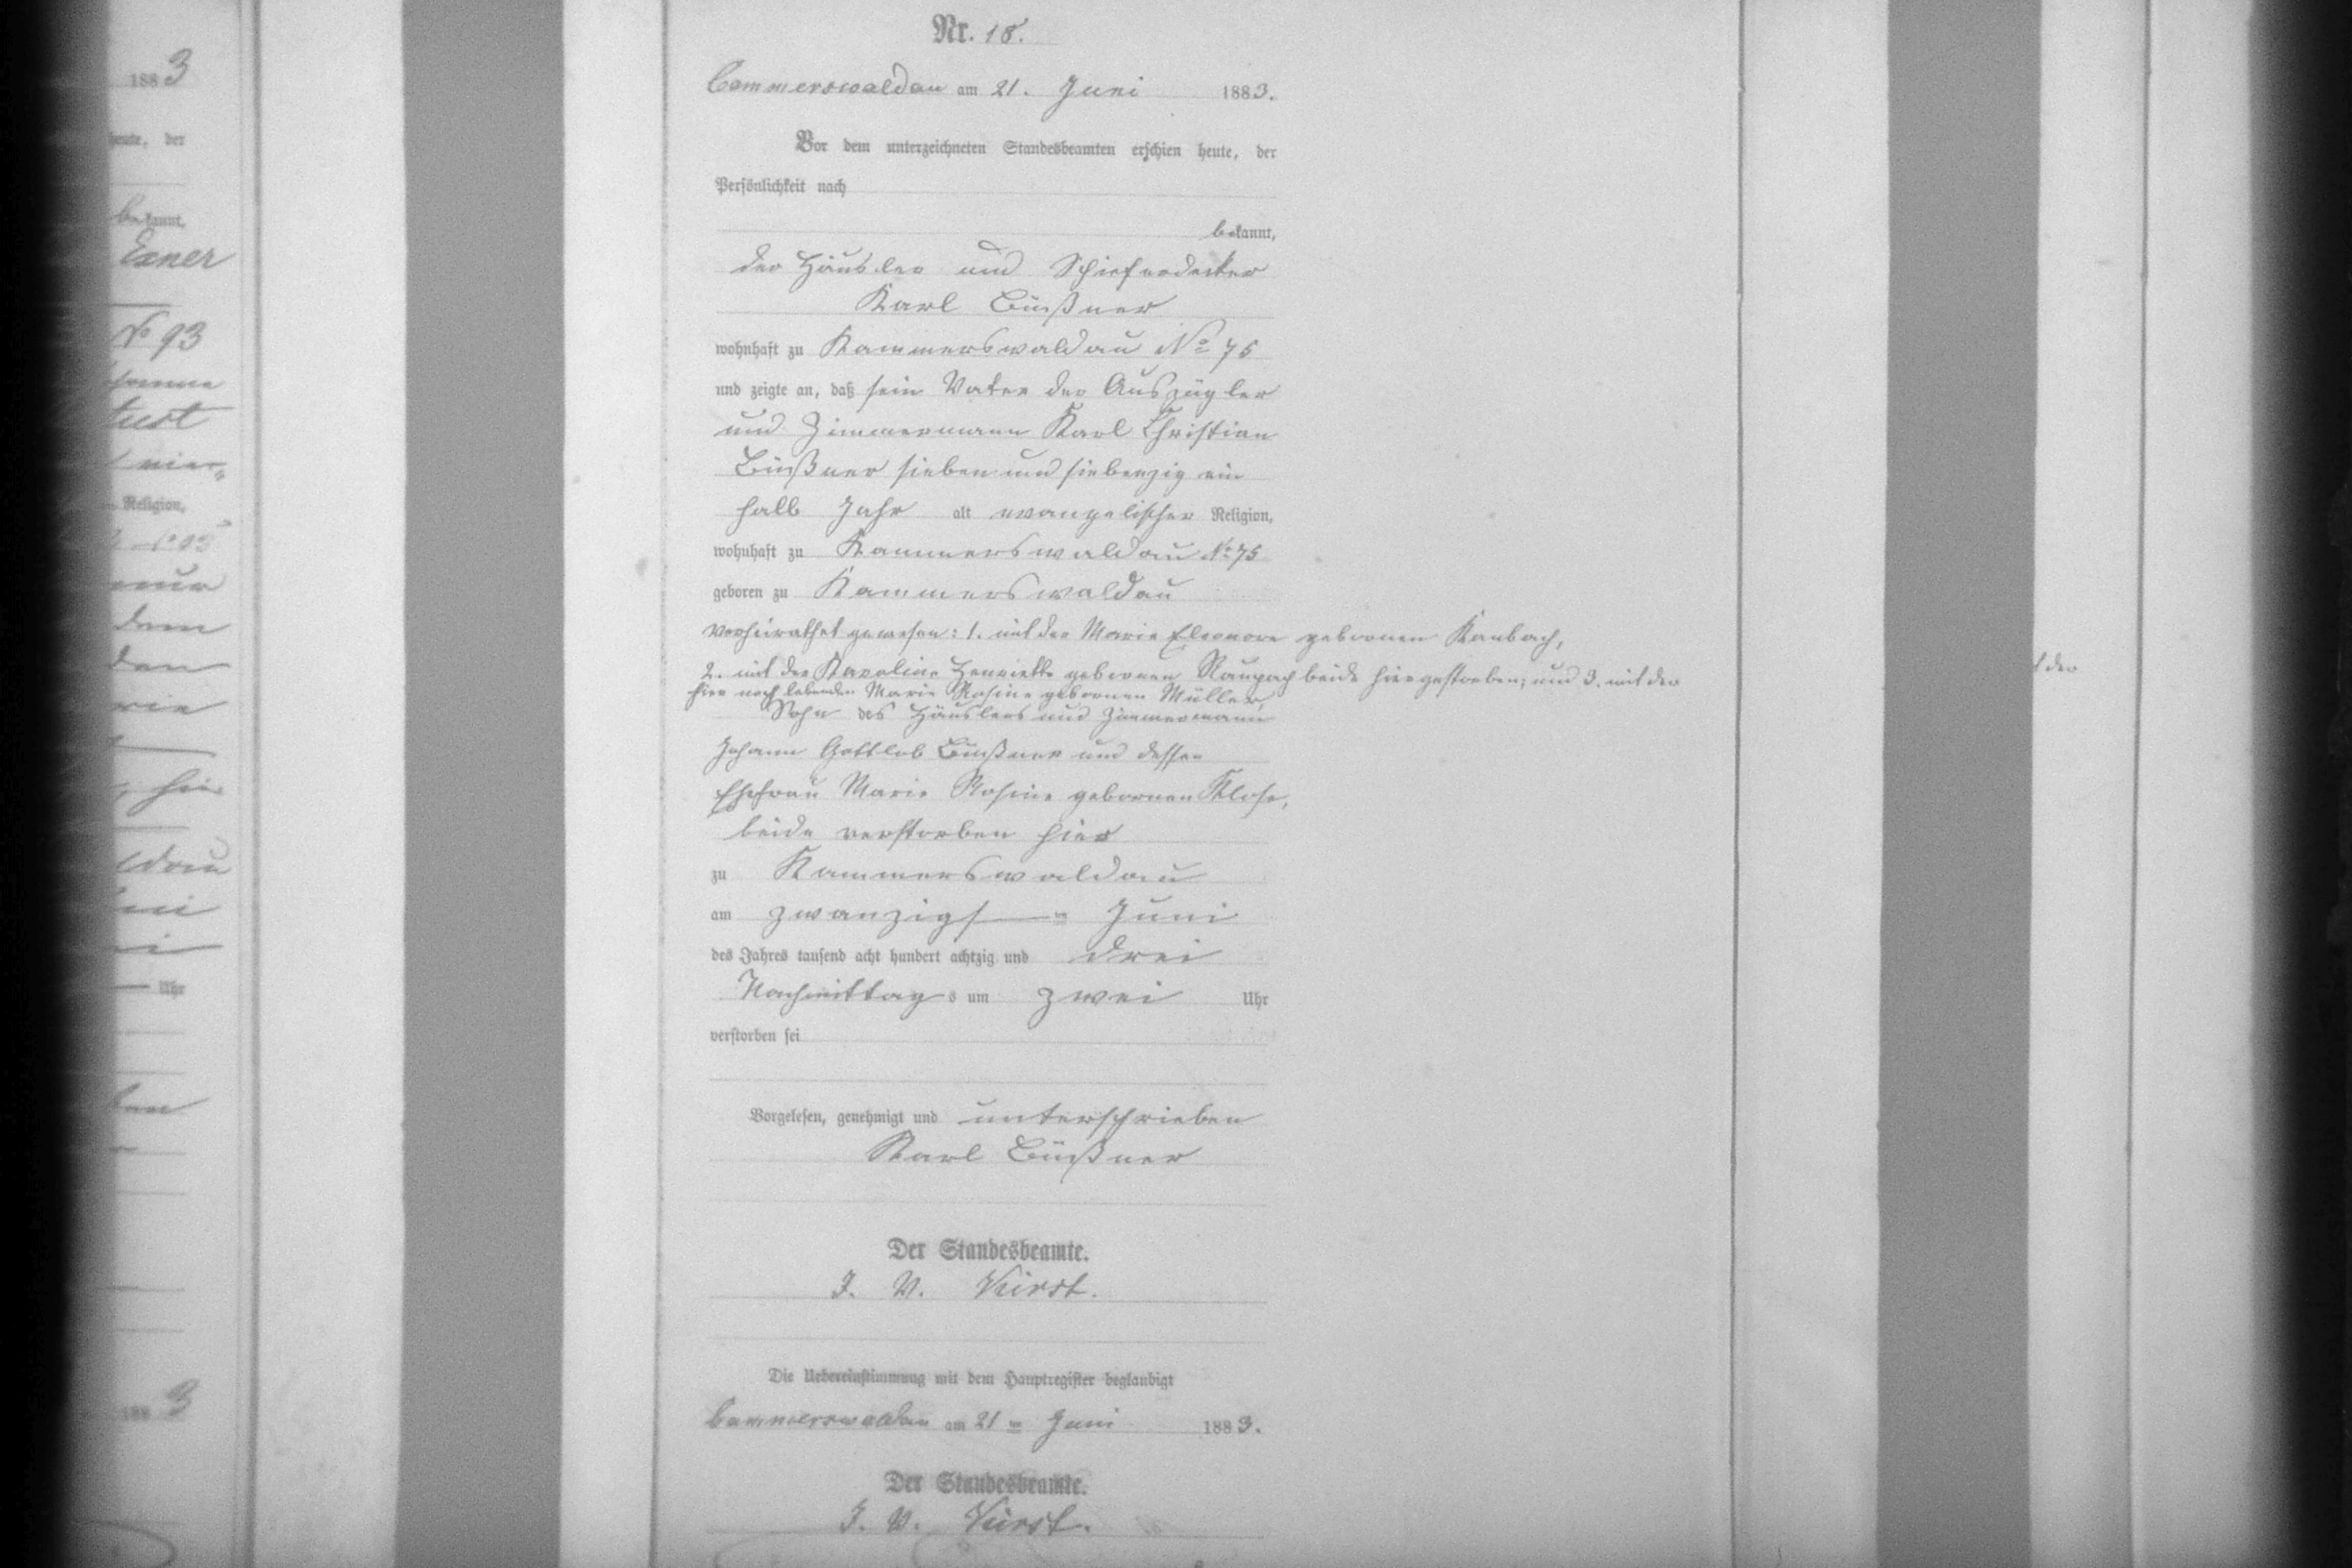 1883
heute, der
bekannt,
Exner
No 93
Religion,
dem
den
hie
Uhr
1883
Nr. 18.
Cammerswaldau am 21. Juni 1883.
Vor dem unterzeichneten Standesbeamten erschien heute, der
Persönlichkeit nach
bekannt,
der Häusler und Schieferdecker
Karl Büßner
wohnhaft zu Kammerswaldau No 75
und zeigte an, daß sein Vater der Auszügler
und Zimmermann Karl Christian
Büßner sieben und siebenzig ein
halb Jahr alt evangelischer Religion,
wohnhaft zu Kammerswaldau No 75
geboren zu Kammerswaldau
verheirathet gewesen: 1. mit der Marie Eleonore gebornen Kambach,
2. mit der Karoline Henriette gebornen Raupach beide hier gestorben; und 3. mit der
hier noch lebenden Marie Rosine gebornen Müller,
Sohn des Häuslers und Zimmermann
Johann Gottlob Büßner und dessen
Ehefrau Marie Rosine gebornen Klose,
beide verstorben hier
zu Kammerswaldau
am zwanzigsten Juni
des Jahres tausend acht hundert achtzig und drei
Nachmittags um zwei Uhr
verstorben sei
Vorgelesen, genehmigt und unterschrieben
Karl Büßner
Der Standesbeamte.
J. V. Kürst.
Die Uebereinstimmung mit dem Hauptregister beglaubigt
Cammerswaldau am 21ten Juni 1883.
Der Standesbeamte.
J. V. Kürst.
der